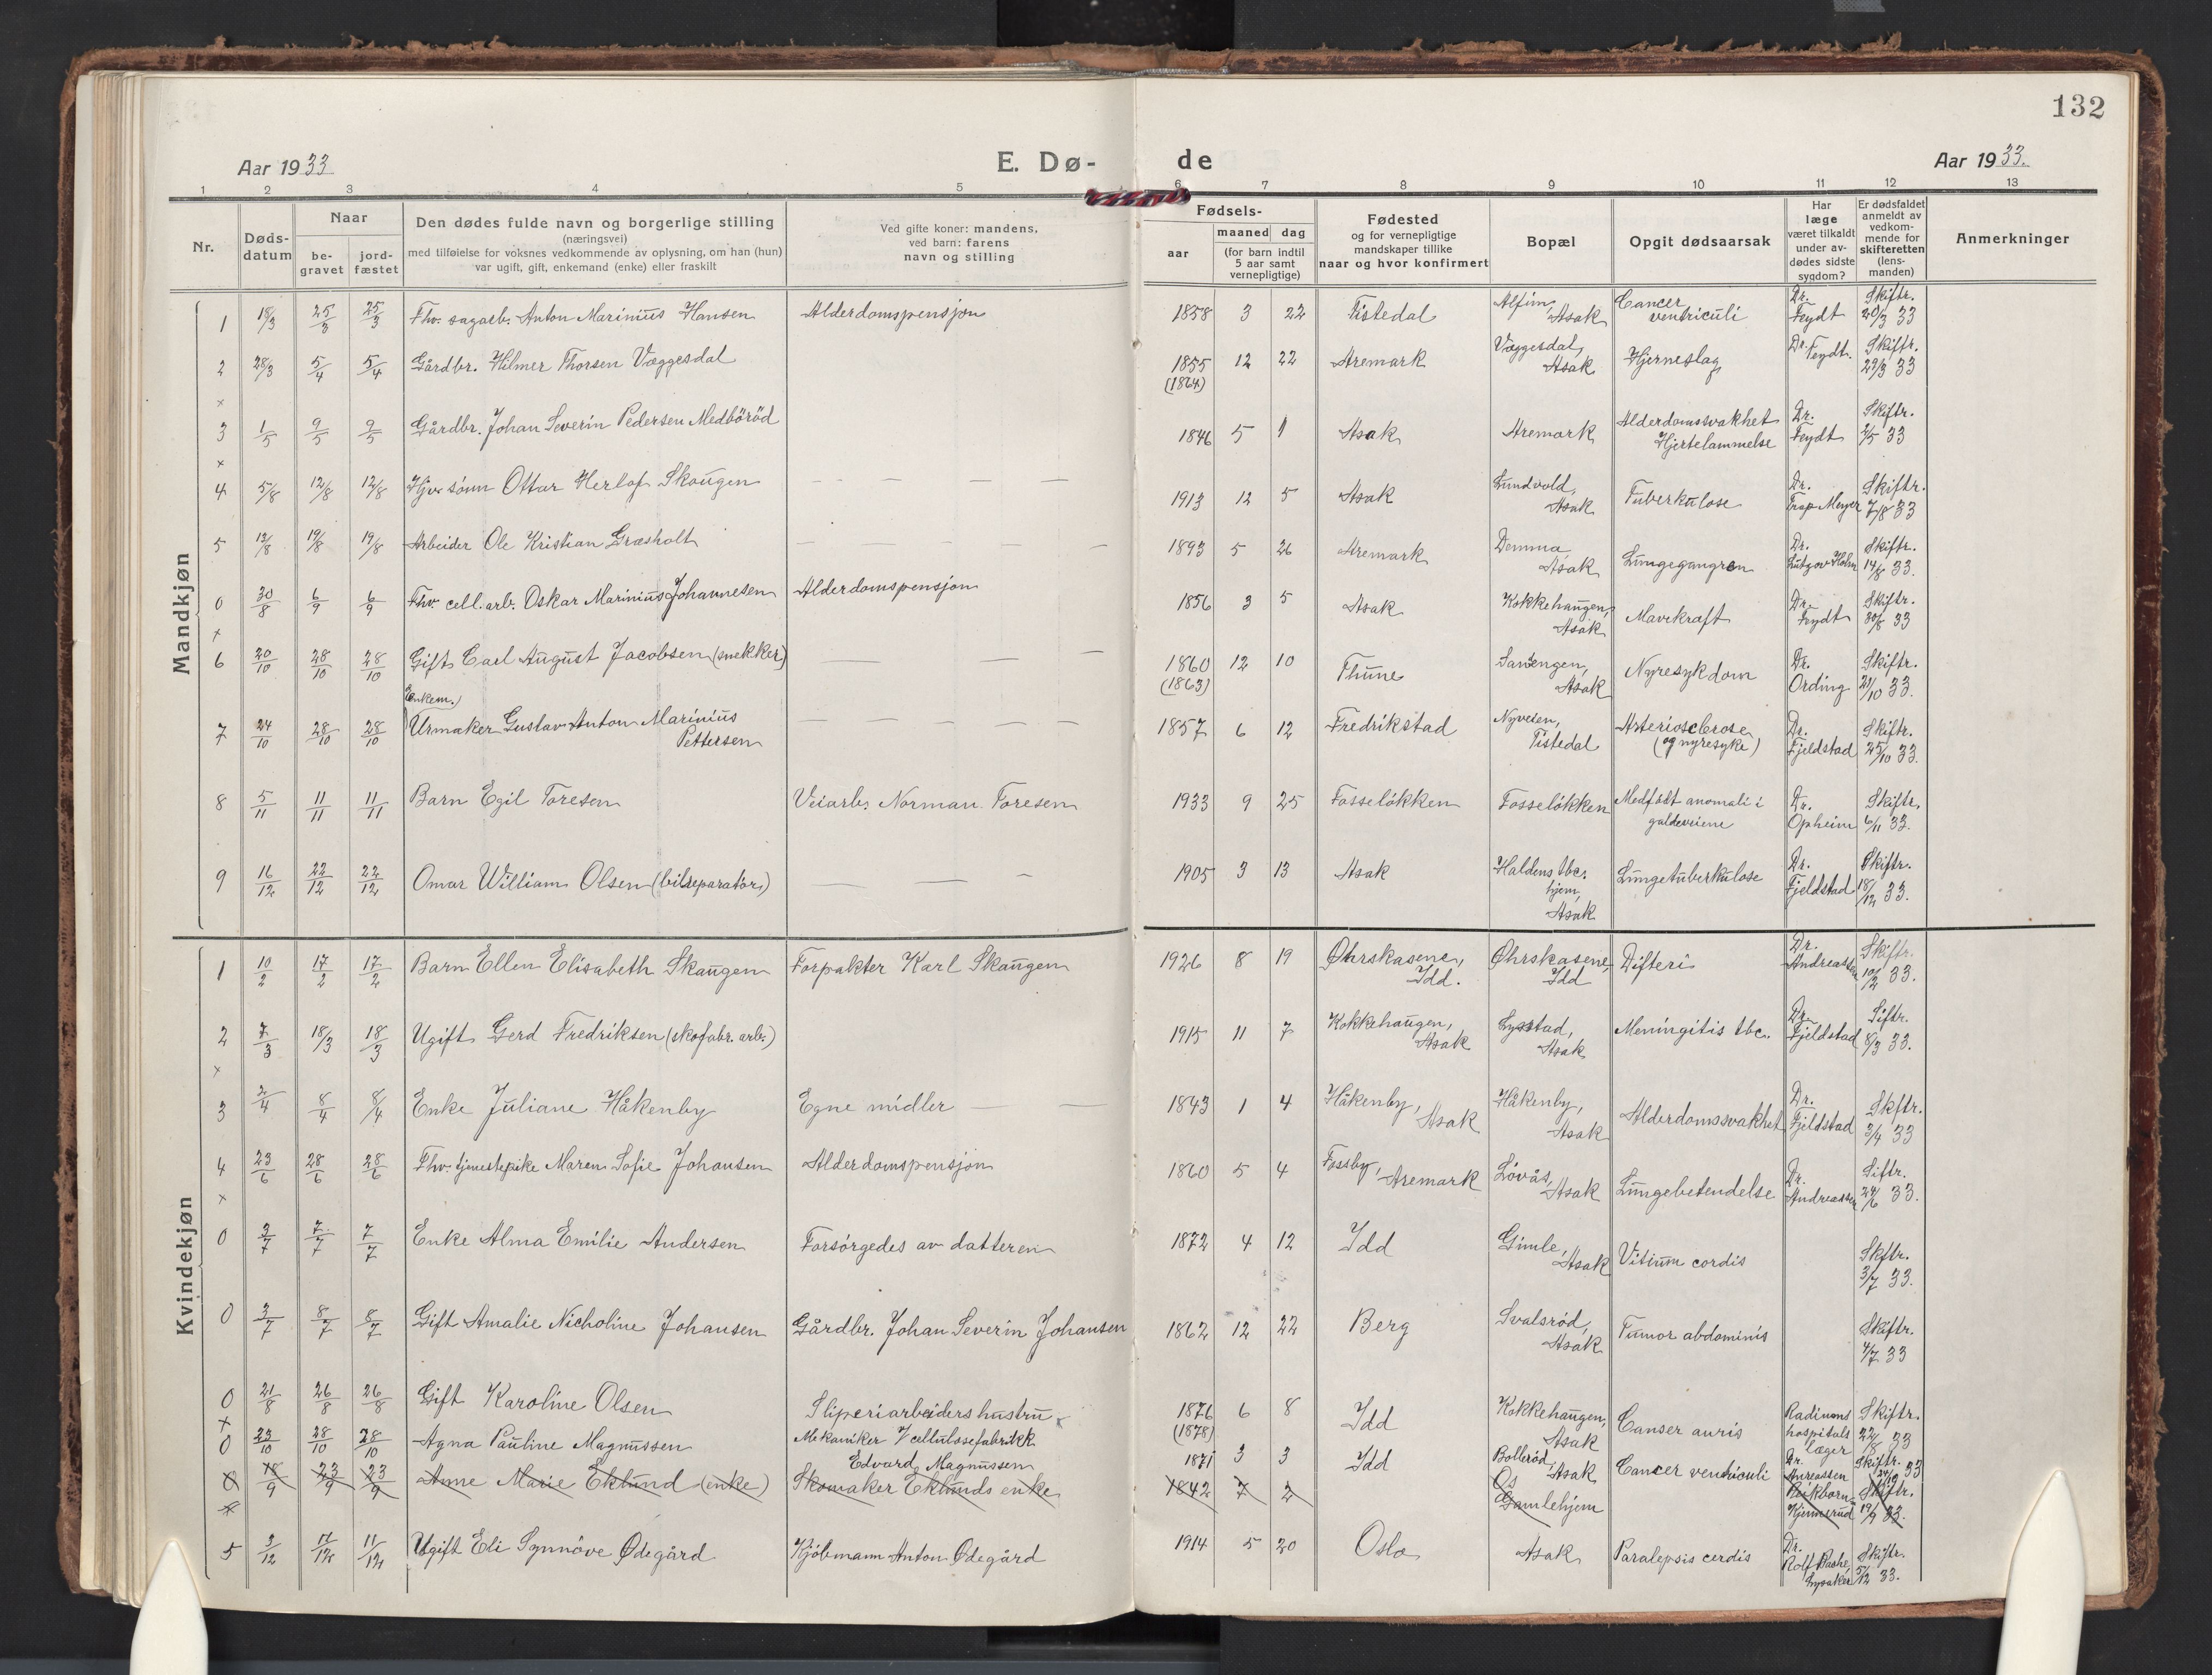 132
Aar 1933
E. Dø-
de
Aar 1933.
1 2 3 4 5 6 7 8 9 10 11 12 13
Nr.
Døds-
datum
Naar
be-
gravet
jord-
fæstet
Den dødes fulde navn og borgerlige stilling
(næringsvei)
med tilføielse for voksnes vedkommende av oplysning, om han (hun)
var ugift, gift, enkemand (enke) eller fraskilt
Ved gifte koner: mandens,
ved barn: farens
navn og stilling
Fødsels-
aar
maaned dag
(for barn indtil
5 aar samt
vernepligtige)
Fødested
og for vernepligtige
mandskaper tillike
naar og hvor konfirmert
Bopæl
Opgit dødsaarsak
Har
læge
været tilkaldt
under av-
dødes sidste
sygdom?
Er dødsfaldet
anmeldt av
vedkom-
mende for
skifteretten
(lens-
manden)
Anmerkninger
Mandkjøn
1 18/3 25/3 25/3 Fhv. sagarb. Anton Marinius Hansen Alderdomspensjon 1858 3 22 Tistedal Alfim, Asak Cancer ventriculi Dr. Feydt Skiftr. 20/3 33
2 28/3 5/4 5/4 Gårdbr. Hilmer Thorsen Væggesdal 1855 (1864) 12 22 Aremark Væggesdal, Asak Hjerneslag Dr. Feydt. Skiftr. 29/3 33
×
3 1/5 9/5 9/5 Gårdbr. Johan Severin Pedersen Medböröd 1846 5 1 Asak Aremark Alderdomssvakhet Hjertelammelse Dr. Feydt Skiftr. 2/5 33
×
4 5/8 12/8 12/8 Hjv. sönn Ottar Herlof Skaugen — — — — 1913 12 5 Asak Lundvold, Asak Tuberkulose Dr. Trap-Meyer Skiftr. 7/8 33
5 13/8 19/8 19/8 Arbeider Ole Kristian Græsholt — — — — — 1893 5 26 Aremark Demma, Asak Lungegangren Dr. Lützow Holm Skiftr. 14/8 33.
0 30/8 6/9 6/9 Fhv. cell. arb. Oskar Marinius Johannesen Alderdomspensjon 1856 3 5 Asak Kokkehaugen, Asak Mavekræft Dr. Feydt Skiftr. 30/8 33
×
6 20/10 28/10 28/10 Gift Carl August Jacobsen (snekker) — — — 1860 (1863) 12 10 Thune Asak Nyresykdom Dr. Ording Skiftr. 21/10 33.
Enkem.
7 24/10 28/10 28/10 Urmaker Gustav Anton Marinius Pettersen — — — — — 1857 6 12 Fredrikstad Nyveien, Tistedal Arteriosclerose (og nyresyke) Dr. Fjeldstad Skiftr. 25/10 33.
8 5/11 11/11 11/11 Barn Egil Toresen Veiarb. Norman Toresen 1933 9 25 Fosselökken Fosselökken Medfödt anomali i galdeveiene Dr. Opheim Skiftr. 6/11 33.
9 16/12 22/12 22/12 Omar William Olsen (bilreparatör) — — — 1905 3 13 Asak Haldens tbc. hjem, Asak Lungetuberkulose Dr. Fjeldstad Skiftr. 18/12 33.
Kvindekjøn
1 10/2 17/2 17/2 Barn Ellen Elisabeth Skaugen Forpakter Karl Skaugen 1926 8 19 Øhrskasene, Idd. Øhrskasene, Idd Difteri Dr. Andreassen Skiftr. 10/2 33.
2 7/3 18/3 18/3 Ugift Gerd Fredriksen (skofabr. arb.) 1915 11 7 Kokkehaugen, Asak Lystad, Asak Meningitis tbc. Dr. Fjeldstad Siftr. 8/3 33.
×
3 2/4 8/4 8/4 Enke Juliane Håkenby Egne midler — — 1843 1 4 Håkenby, Asak Håkenby, Asak Alderdomssvakhet Dr. Fjeldstad Skftr. 3/4 33
4 23/6 28/6 28/6 Fhv. tjenestepike Maren Sofie Johansen Alderdomspensjon 1860 5 4 Fossby, Aremark Lövås, Asak Lungebetendelse Dr. Andreassen Siftr. 24/6 33.
×
0 3/7 7/7 7/7 Enke Alma Emilie Andersen Forsörgedes av datteren 1872 4 12 Idd Gimle, Asak Vitium cordis Skftr. 3/7 33.
0 3/7 8/7 8/7 Gift Amalie Nicholine Johansen Gårdbr. Johan Severin Johansen 1862 12 22 Berg Svalsröd, Asak Tumor abdominis Skiftr. 4/7 33
0 21/8 26/8 26/8 Gift Karoline Olsen Sliperiarbeiders hustru 1876 (1878) 6 8 Idd Kokkehaugen, Asak Canser auris Radiums hospitals læger Skiftr. 22/8 33
×
0 23/10 28/10 28/10 Agna Pauline Magnussen Mekaniker v cellulosefabrikk Edvard Magnussen 1871 3 3 Idd Bolleröd, Asak Cancer ventriculi Dr. Andreassen Skiftr. 24/10 33
0 18/9 23/9 23/9 Anne Marie Eklund (enke) Skomaker Eklunds enke 1842 7 2 Os Gamlehjem Kjennerud Skiftr. 19/9 33.
×
5 3/12 11/12 11/12 Ugift Eli Synnöve Ødegård Kjöbmann Anton Ødegård 1914 5 20 Oslo Asak Paralepsis cerdis Dr. Rolf Bache, Lysaker Skiftr. 5/12 33.